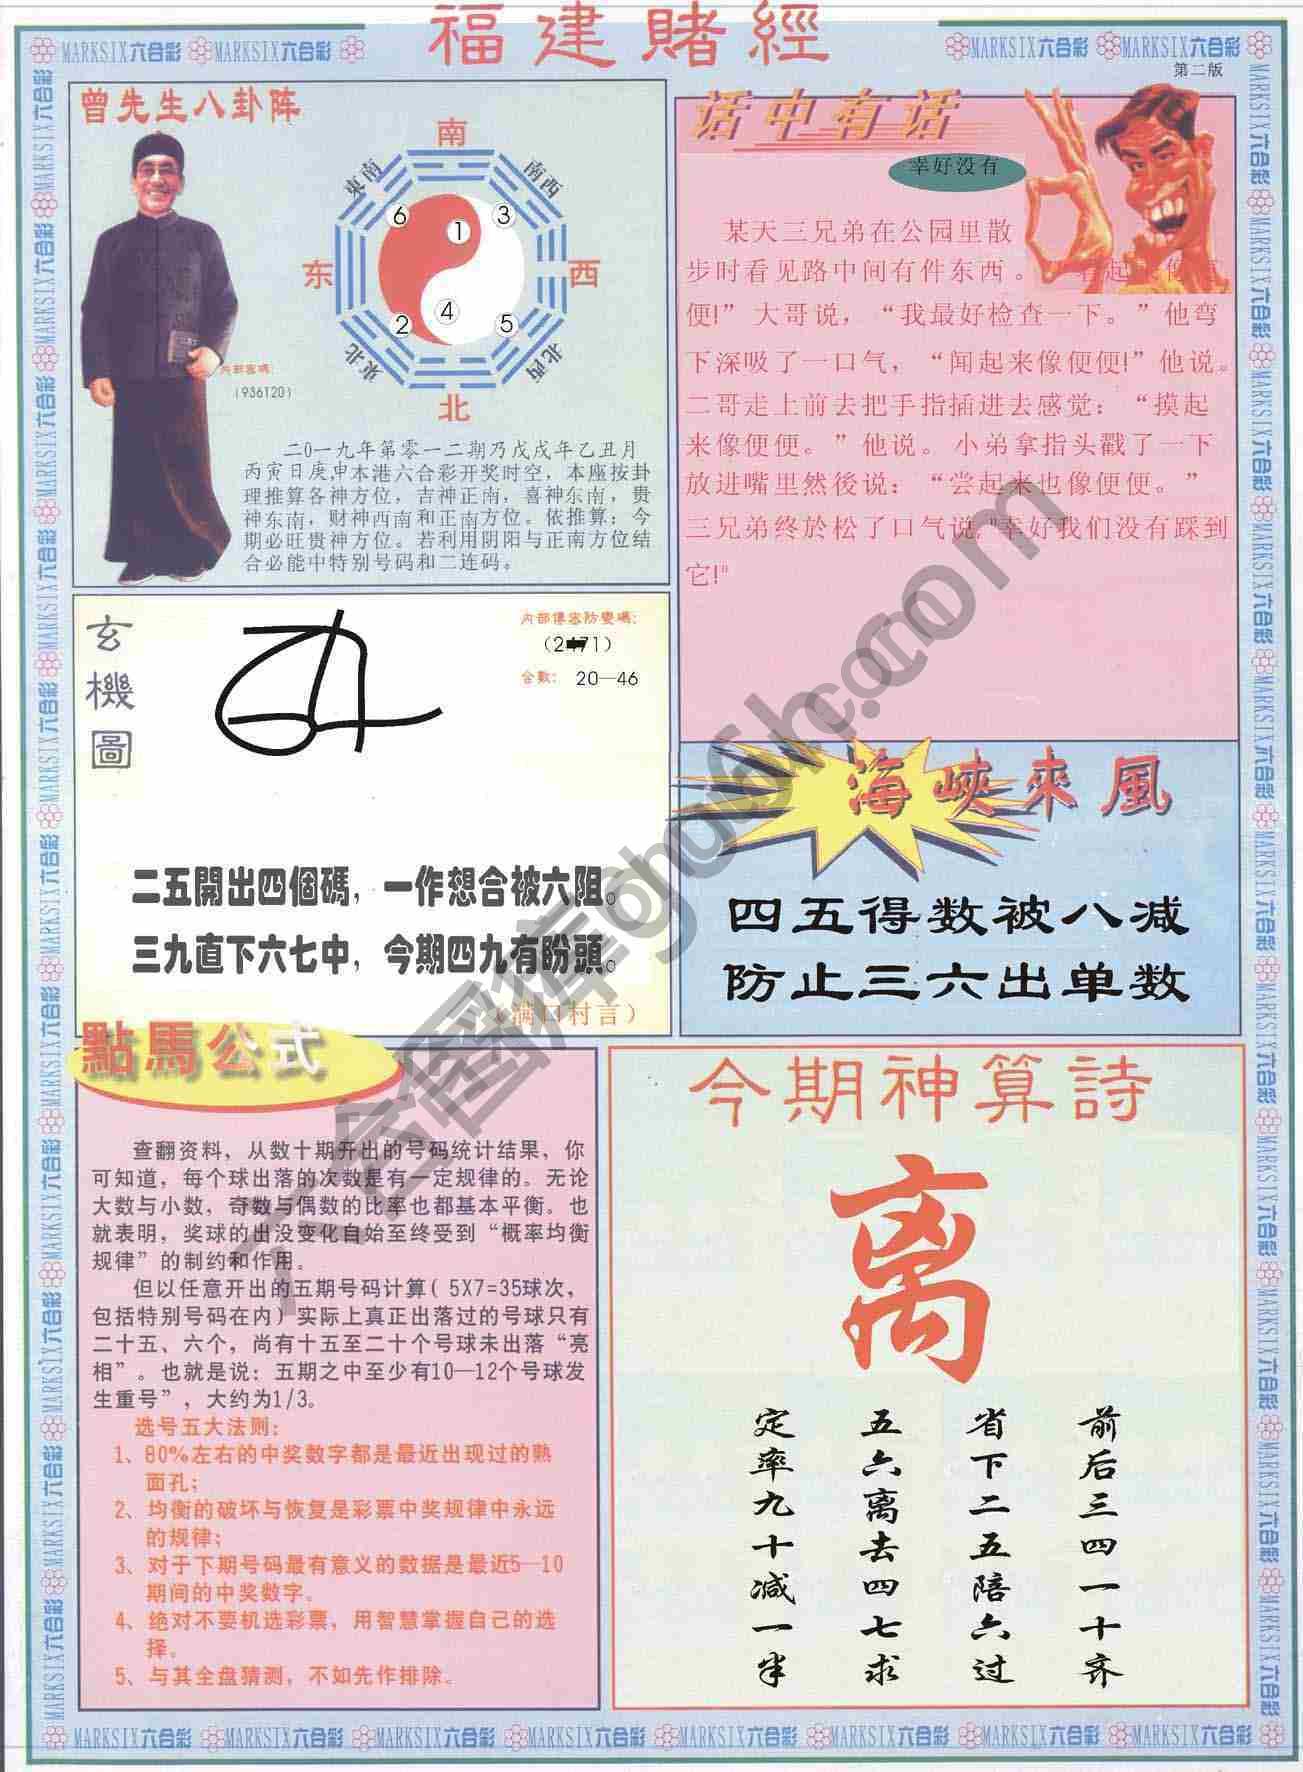 福建賭經
MARKSIX六合彩 MARKSIX六合彩
MARKSIX六合彩 MARKSIX六合彩
第二版
曾先生八卦阵
南
東南
南西
东
西
東北
北西
北
6
1
3
4
2
5
内部密碼:
(936120)
二0一九年第零一二期乃戊戌年乙丑月
丙寅日庚申本港六合彩开奖时空，本座按卦
理推算各神方位，吉神正南，喜神东南，贵
神东南，财神西南和正南方位。依推算：今
期必旺贵神方位。若利用阴阳与正南方位结
合必能中特别号码和二连码。
话中有话
幸好没有
某天三兄弟在公园里散
步时看见路中间有件东西。
便!”大哥说，“我最好检查一下。”他弯
下深吸了一口气，“闻起来像便便!”他说。
二哥走上前去把手指插进去感觉：“摸起
来像便便。”他说。小弟拿指头戳了一下
放进嘴里然後说：“尝起来也像便便。”
三兄弟终於松了口气说,“幸好我们没有踩到
它!”
玄機圖
内部傳密防變碼:
合數: 20—46
二五開出四個碼，一作想合被六阻。
三九直下六七中，今期四九有盼頭。
（满口村言）
海峽來風
四五得数被八减
防止三六出单数
點馬公式
查翻资料，从数十期开出的号码统计结果，你
可知道，每个球出落的次数是有一定规律的。无论
大数与小数，奇数与偶数的比率也都基本平衡。也
就表明，奖球的出没变化自始至终受到“概率均衡
规律”的制约和作用。
但以任意开出的五期号码计算( 5X7=35球次,
包括特别号码在内)实际上真正出落过的号球只有
二十五、六个，尚有十五至二十个号球未出落“亮
相”。也就是说：五期之中至少有10—12个号球发
生重号”，大约为1/3。
选号五大法则:
1、80%左右的中奖数字都是最近出现过的熟
面孔;
2、均衡的破坏与恢复是彩票中奖规律中永远
的规律;
3、对于下期号码最有意义的数据是最近5—10
期间的中奖数字。
4、绝对不要机选彩票，用智慧掌握自己的选
择。
5、与其全盘猜测，不如先作排除。
今期神算詩
离
前后三四一十齐
省下二五陪六过
五六离去四七求
定率九十减一半
MARKSIX六合彩 MARKSIX六合彩 MARKSIX六合彩 MARKSIX六合彩 MARKSIX六合彩 MARKSIX六合彩 MARKSIX六合彩 MARKSIX六合彩